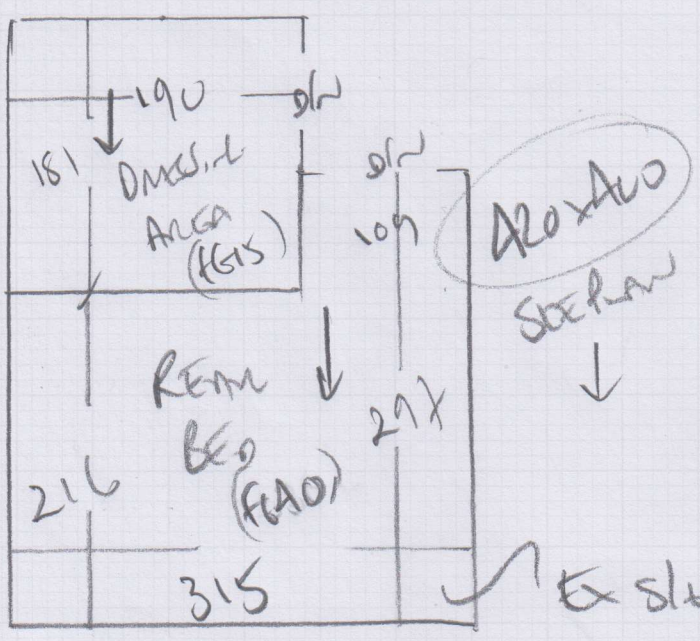 190
D/W
181
DRESSING
AREA
(FG15)
D/W
109
420x400
SEE PLAN
REAR
BED
(FG40)
297
216
315
Ex S/